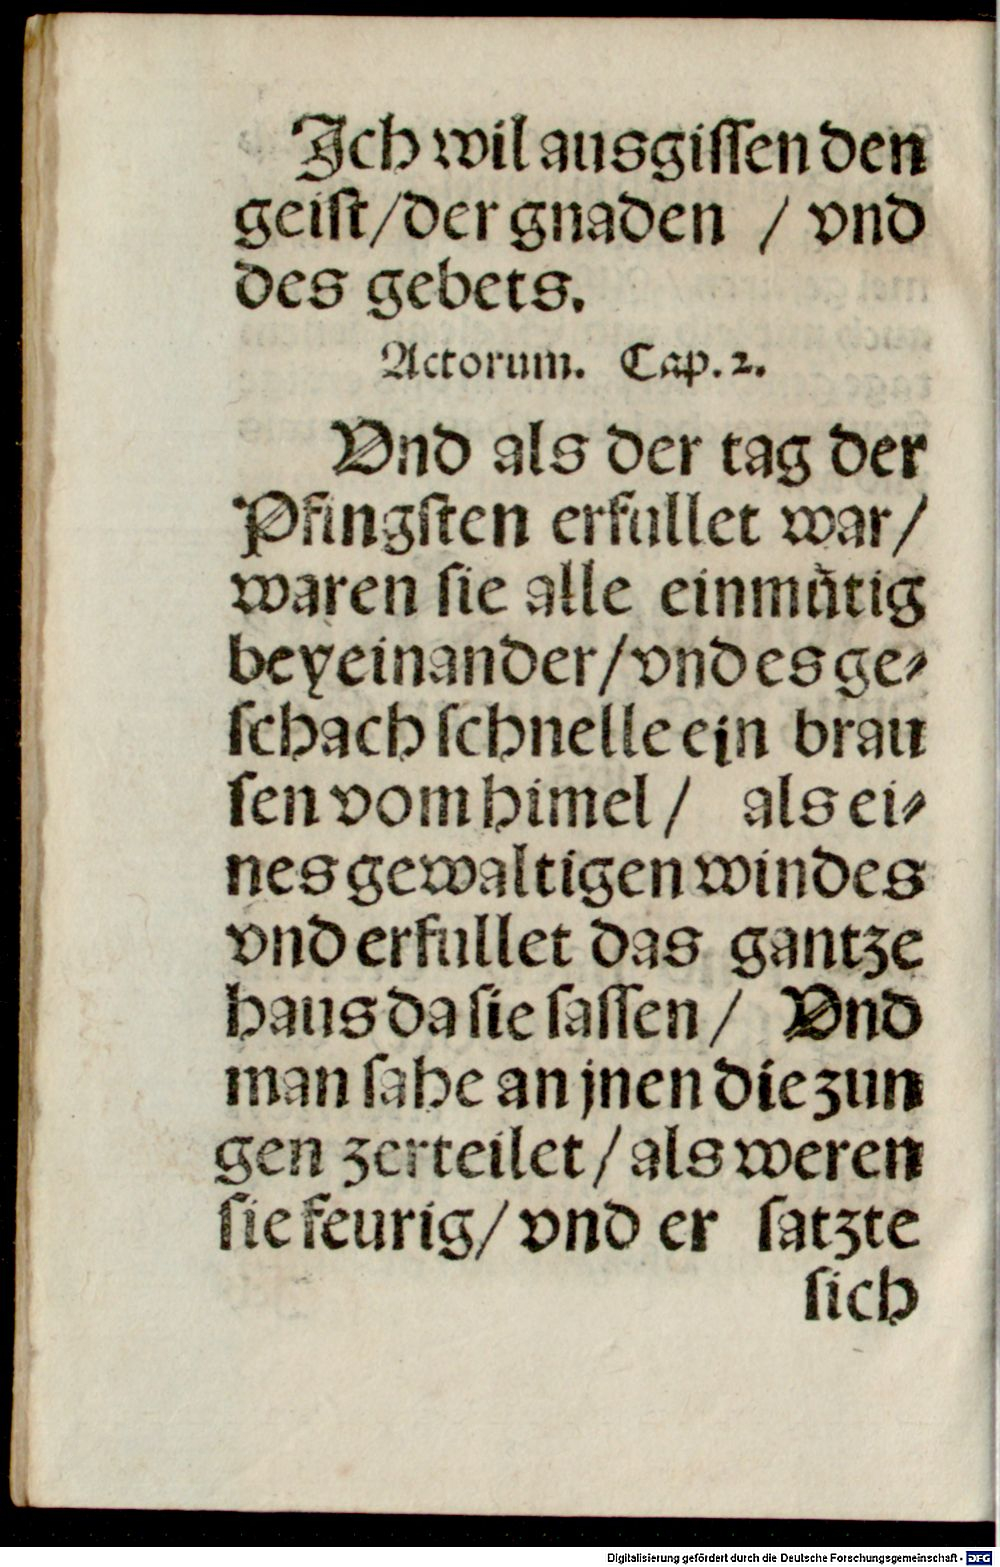 Ich wil ausgiſſen den
geiſt/der gnaden / vnd
des gebets.
Actorum. Cap. 2.
Vnd als der tag der
Pfingſten erfullet war/
waren ſie alle einmuͤtig
beyeinander/vnd es ge⸗
ſchach ſchnelle ein brau
ſen vom himel/ als ei⸗
nes gewaltigen windes
vnd erfullet das gantze
haus da ſie ſaſſen/ Vnd
man ſahe an jnen die zun
gen zerteilet/als weren
ſie feurig/ vnd er ſatzte
ſich
Digitalisierung gefördert durch die Deutsche Forschungsgemeinschaft - DFG